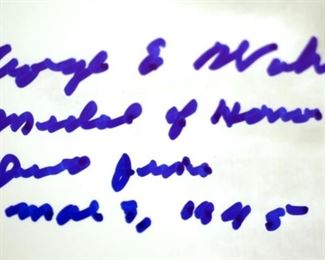 George E
Medal of Honor
Iwo Jima
Mar 3, 1945